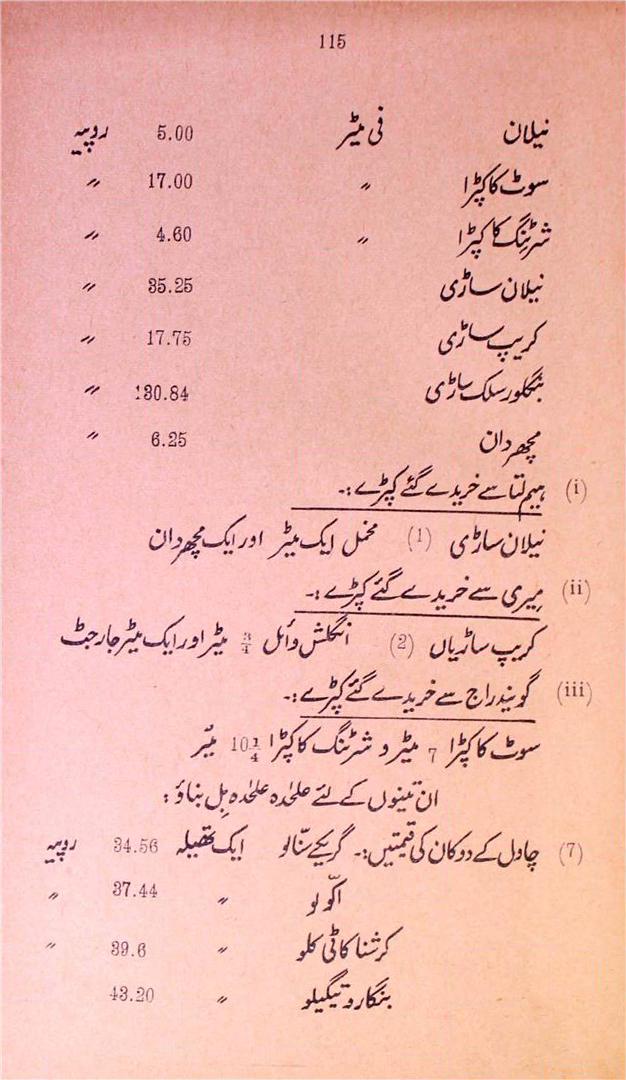 115
نیلان فی میٹر 5.00 روپیہ
سوٹ کا کپڑا 〃 17.00 〃
شرٹنگ کا کپڑا 〃 4.60 〃
نیلان ساڑی 35.25 〃
کریپ ساڑی 17.75 〃
بنگلور سلک ساڑی 130.84 〃
مچھر دان 6.25 〃
(i) ہیم لتا سے خریدے گئے کپڑے :۔
نیلان ساڑی (1) مخمل ایک میٹر اور ایک مچھر دان
(ii) میری سے خریدے گئے کپڑے :۔
کریپ ساڑیاں (2) انگلش وائل 3/4 میٹر اور ایک میٹر جارجٹ
(iii) گویندراج سے خریدے گئے کپڑے :۔
سوٹ کا کپڑا 7 میٹر و شرٹنگ کا کپڑا 10 1/4 میٹر
ان تینوں کے لئے علحٰدہ علحٰدہ بل بناؤ :
(7) چاول کے دوکان کی قیمتیں :۔ گریکے سنّالو ایک تھیلہ 34.56 روپیہ
اکّولو 〃 37.44 〃
کرشنا کاٹی کلو 〃 39.6 〃
بنگارو تیگیلو 〃 43.20